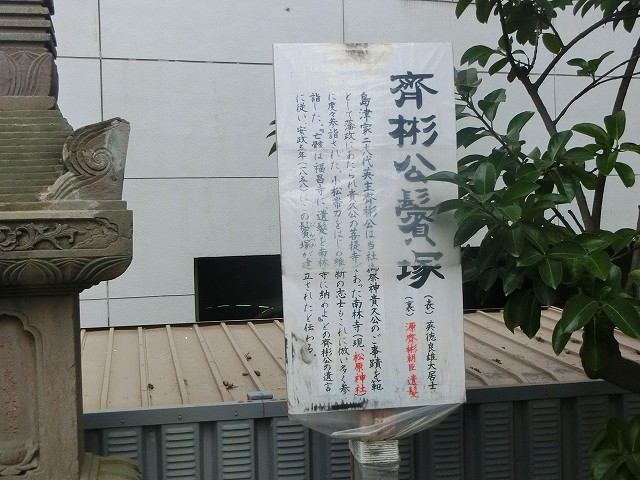 齊彬公鬢塚
(表) 英徳良雄大居士
(裏) 源齊彬朝臣遺髪
島津家二十八代英主齊彬公は当社御祭神貴久公のご事蹟を範
として藩政にあたられ貴公の菩提寺であった南林寺(現、松原神社)
に度々参詣された。小松帯刀をはじめ維新の志士もこれに倣い多く参
詣した。『亡骸は福昌寺に遺髪を南林寺に納めよ』との齊彬公の遺言
に従い、安政五年(一八五八)この鬢塚が建立されたと伝わる。